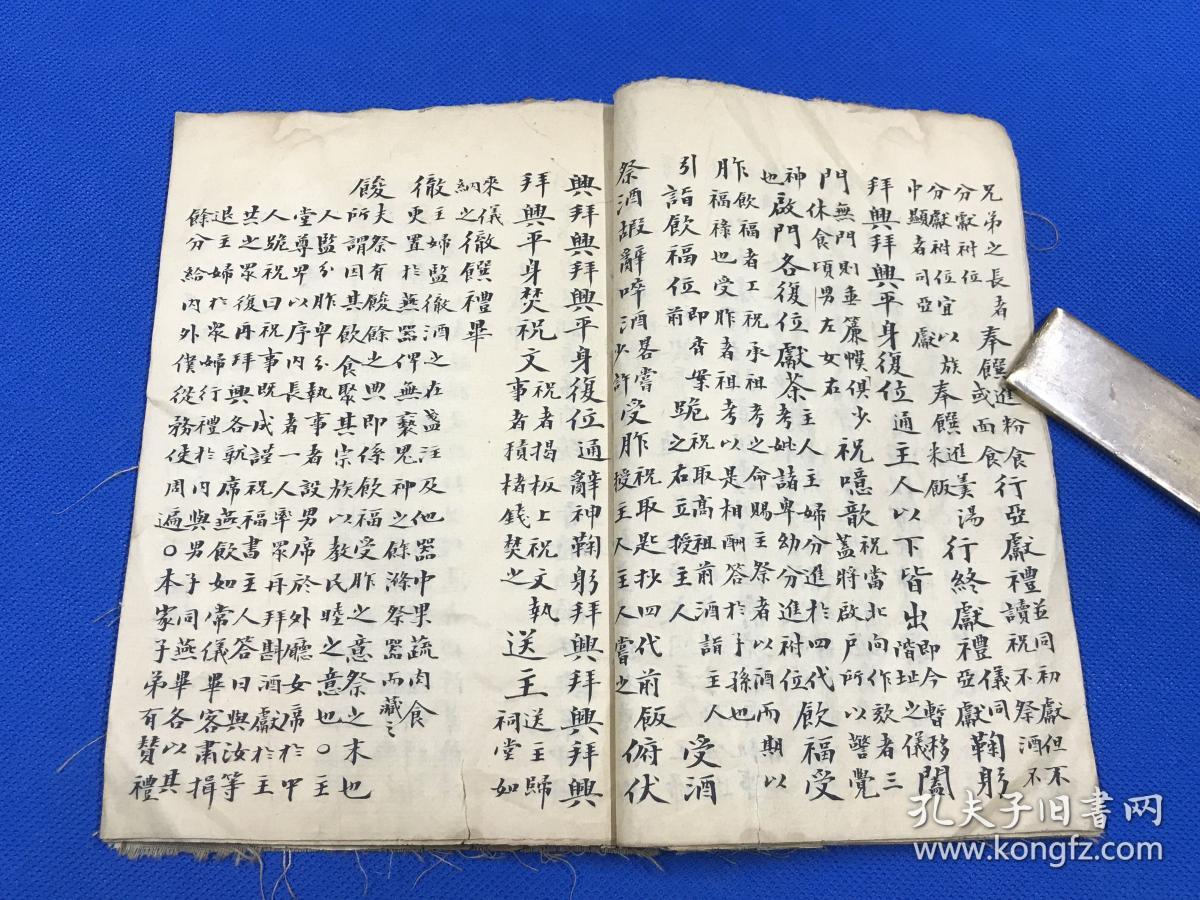 兄弟之長者分獻祔位奉饌進粉食或面食行亞獻禮並同初獻但不讀祝不祭酒不
分獻祔位宜以族中顯者司亞獻奉饌進羹湯米飯行終獻禮儀同亞獻鞠躬
拜興拜興平身復位通主人以下皆出即今暫移階址之儀三闔
門無門則垂簾幙俱少休食頃男左女右祝噫歆祝當北向作欬者三蓋將啟戶所以警覺
神也啟門各復位獻茶主人主婦分進於四代考妣諸卑幼分進祔位飲福受
胙飲福者工祝承祖考之命賜主祭者以酒而期以福祿也受胙者祖考以是相酬答於子孫也
引詣飲福位即香案前跪祝取高祖前酒詣主人之右立授主人受酒
祭酒嘏辭啐酒畧嘗少許受胙祝取匙抄四代前飯授主人主人嘗之俯伏
興拜興拜興平身復位通辭神鞠躬拜興拜興拜興
拜興平身焚祝文祝者揭板上祝文執事者積楮錢焚之送主送主歸祠堂如
來儀納之徹饌禮畢
徹主婦監徹酒之在盞注及他器中果蔬肉食更置於燕器俾無褻鬼神之餘滌祭器而藏之
餕夫祭有餕餘之典即係飲福受胙之意祭之末也
所謂因其飲食聚其宗族以教民睦之意也〇主
人監分胙卑幼執事者設男席於外廳女席於中
堂尊卑以序內長者一人率眾再拜斟酒獻於主
人跪祝曰祝事既成謹祝福書主人答曰與汝等
共之眾復再拜興各就席燕飲如常儀畢客肅揖
退主婦於眾婦行禮於內與男子同燕畢各以其
餘分給內外僕從務使周遍〇本家子弟有贊禮
孔夫子旧书网
www.kongfz.com